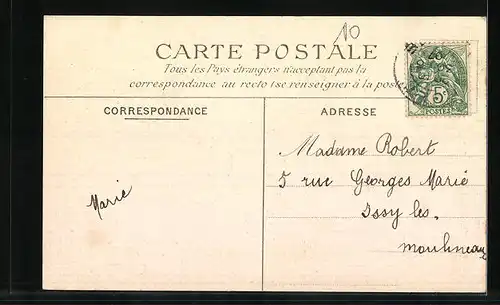 10
CARTE POSTALE
Tous les Pays étrangers n'acceptant pas la
correspondance au recto (se renseigner à la poste
CORRESPONDANCE
ADRESSE
Madame Robert
5 rue Georges Marié
Issy les.
moulineaux
Marie
5c
POSTES